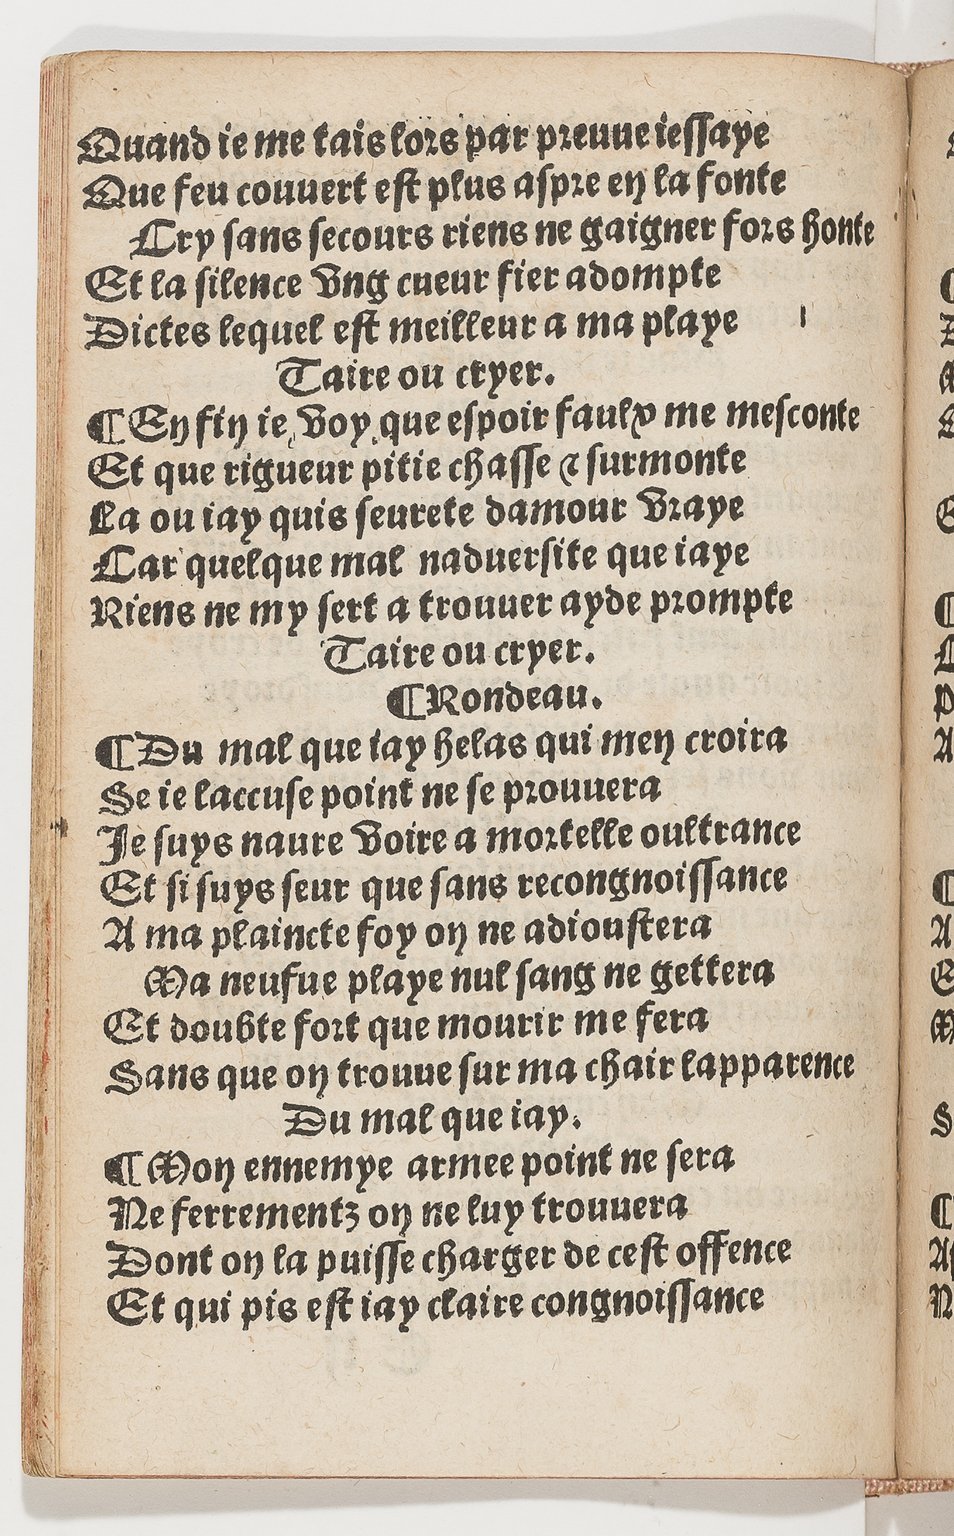 Quand ie me tais lors par preuue iessaye
Que feu couuert est plus aspre en la fonte
Cry sans secours riens ne gaigner fors honte
Et la silence vng cueur fier adompte
Dictes lequel est meilleur a ma playe
Taire ou cryer.
¶ En fin ie voy que espoir faulx me mesconte
Et que rigueur pitie chasse ⁊ surmonte
La ou iay quis seurete damour vraye
Car quelque mal naduersite que iaye
Riens ne my sert a trouuer ayde prompte
Taire ou cryer.
¶ Rondeau.
¶ Du mal que iay helas qui men croira
Se ie laccuse point ne se prouuera
Je suys naure voire a mortelle oultrance
Et si suys seur que sans recongnoissance
A ma plaincte foy on ne adioustera
Ma neufue playe nul sang ne gettera
Et doubte fort que mourir me fera
Sans que on trouue sur ma chair lapparence
Du mal que iay.
¶ Mon ennemye armee point ne sera
Ne ferrementz on ne luy trouuera
Dont on la puisse charger de cest offence
Et qui pis est iay claire congnoissance